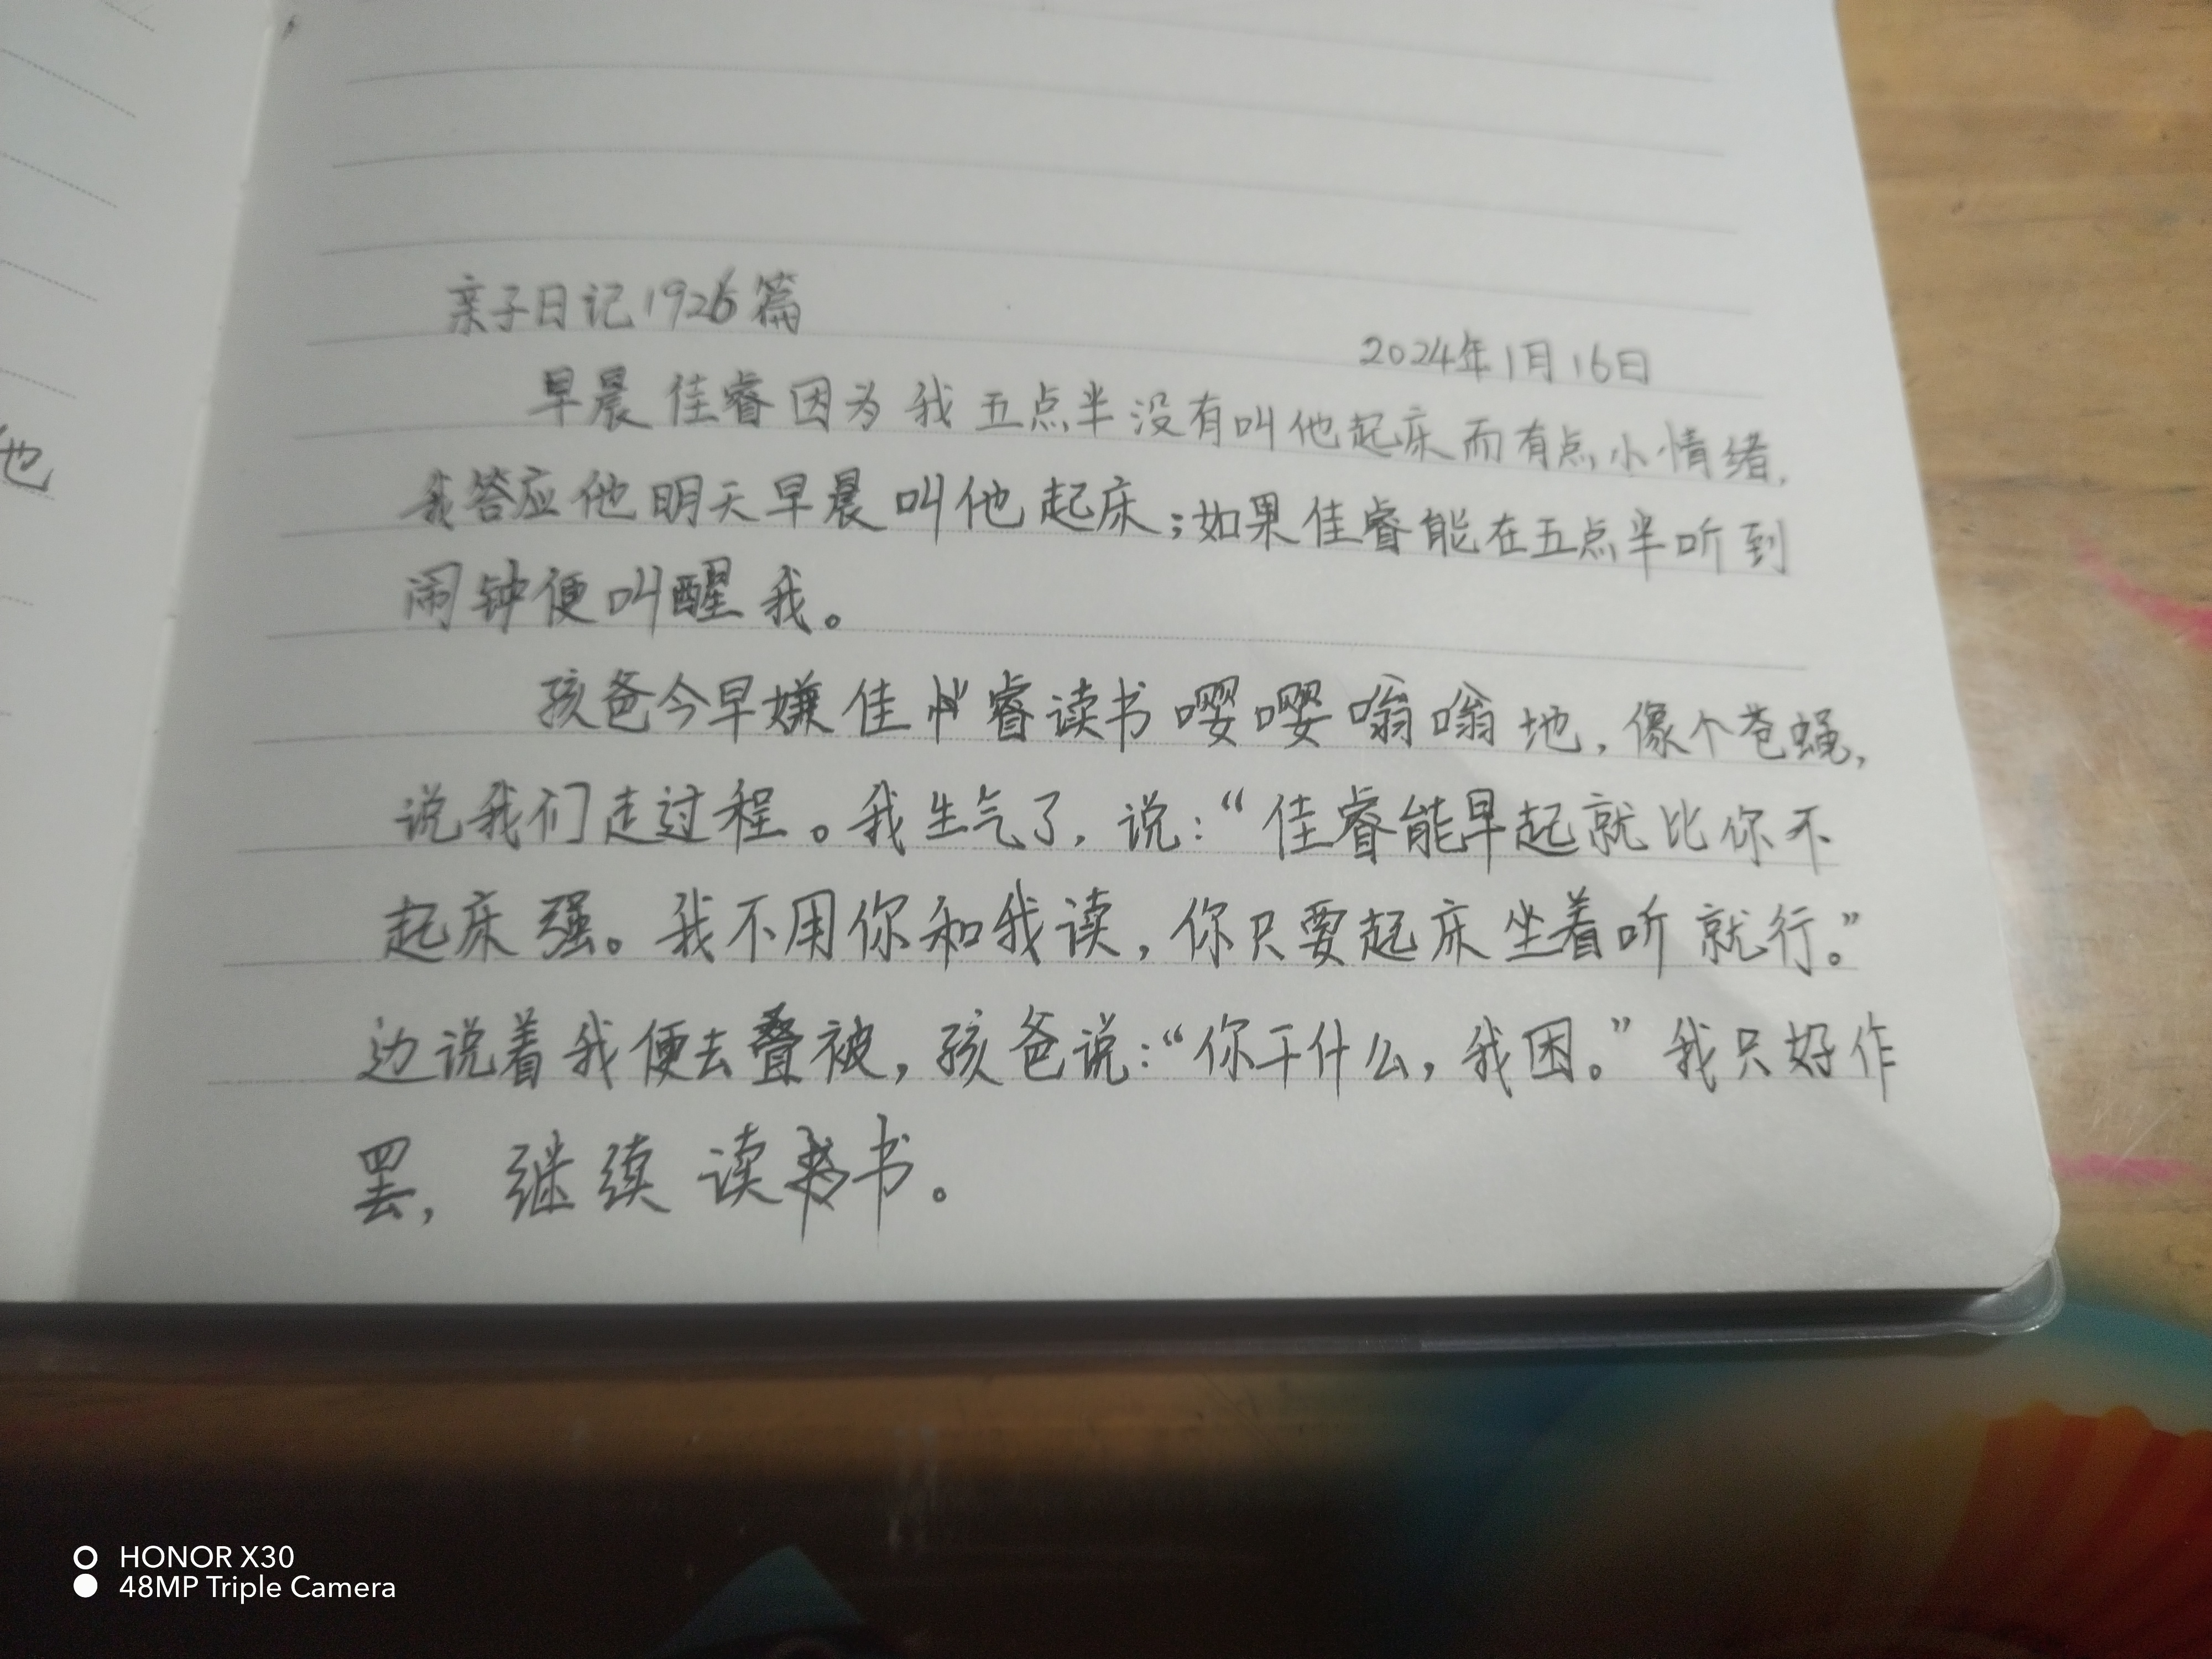 也
亲子日记1926篇
2024年1月16日
早晨佳睿因为我五点半没有叫他起床而有点小情绪,
我答应他明天早晨叫他起床;如果佳睿能在五点半听到
闹钟便叫醒我。
孩爸今早嫌佳睿读书嘤嘤嗡嗡地,像个苍蝇,
说我们走过程。我生气了,说:“佳睿能早起就比你不
起床强。我不用你和我读,你只要起床坐着听就行。”
边说着我便去叠被,孩爸说:“你干什么,我困。”我只好作
罢,继续读书。
HONOR X30
48MP Triple Camera